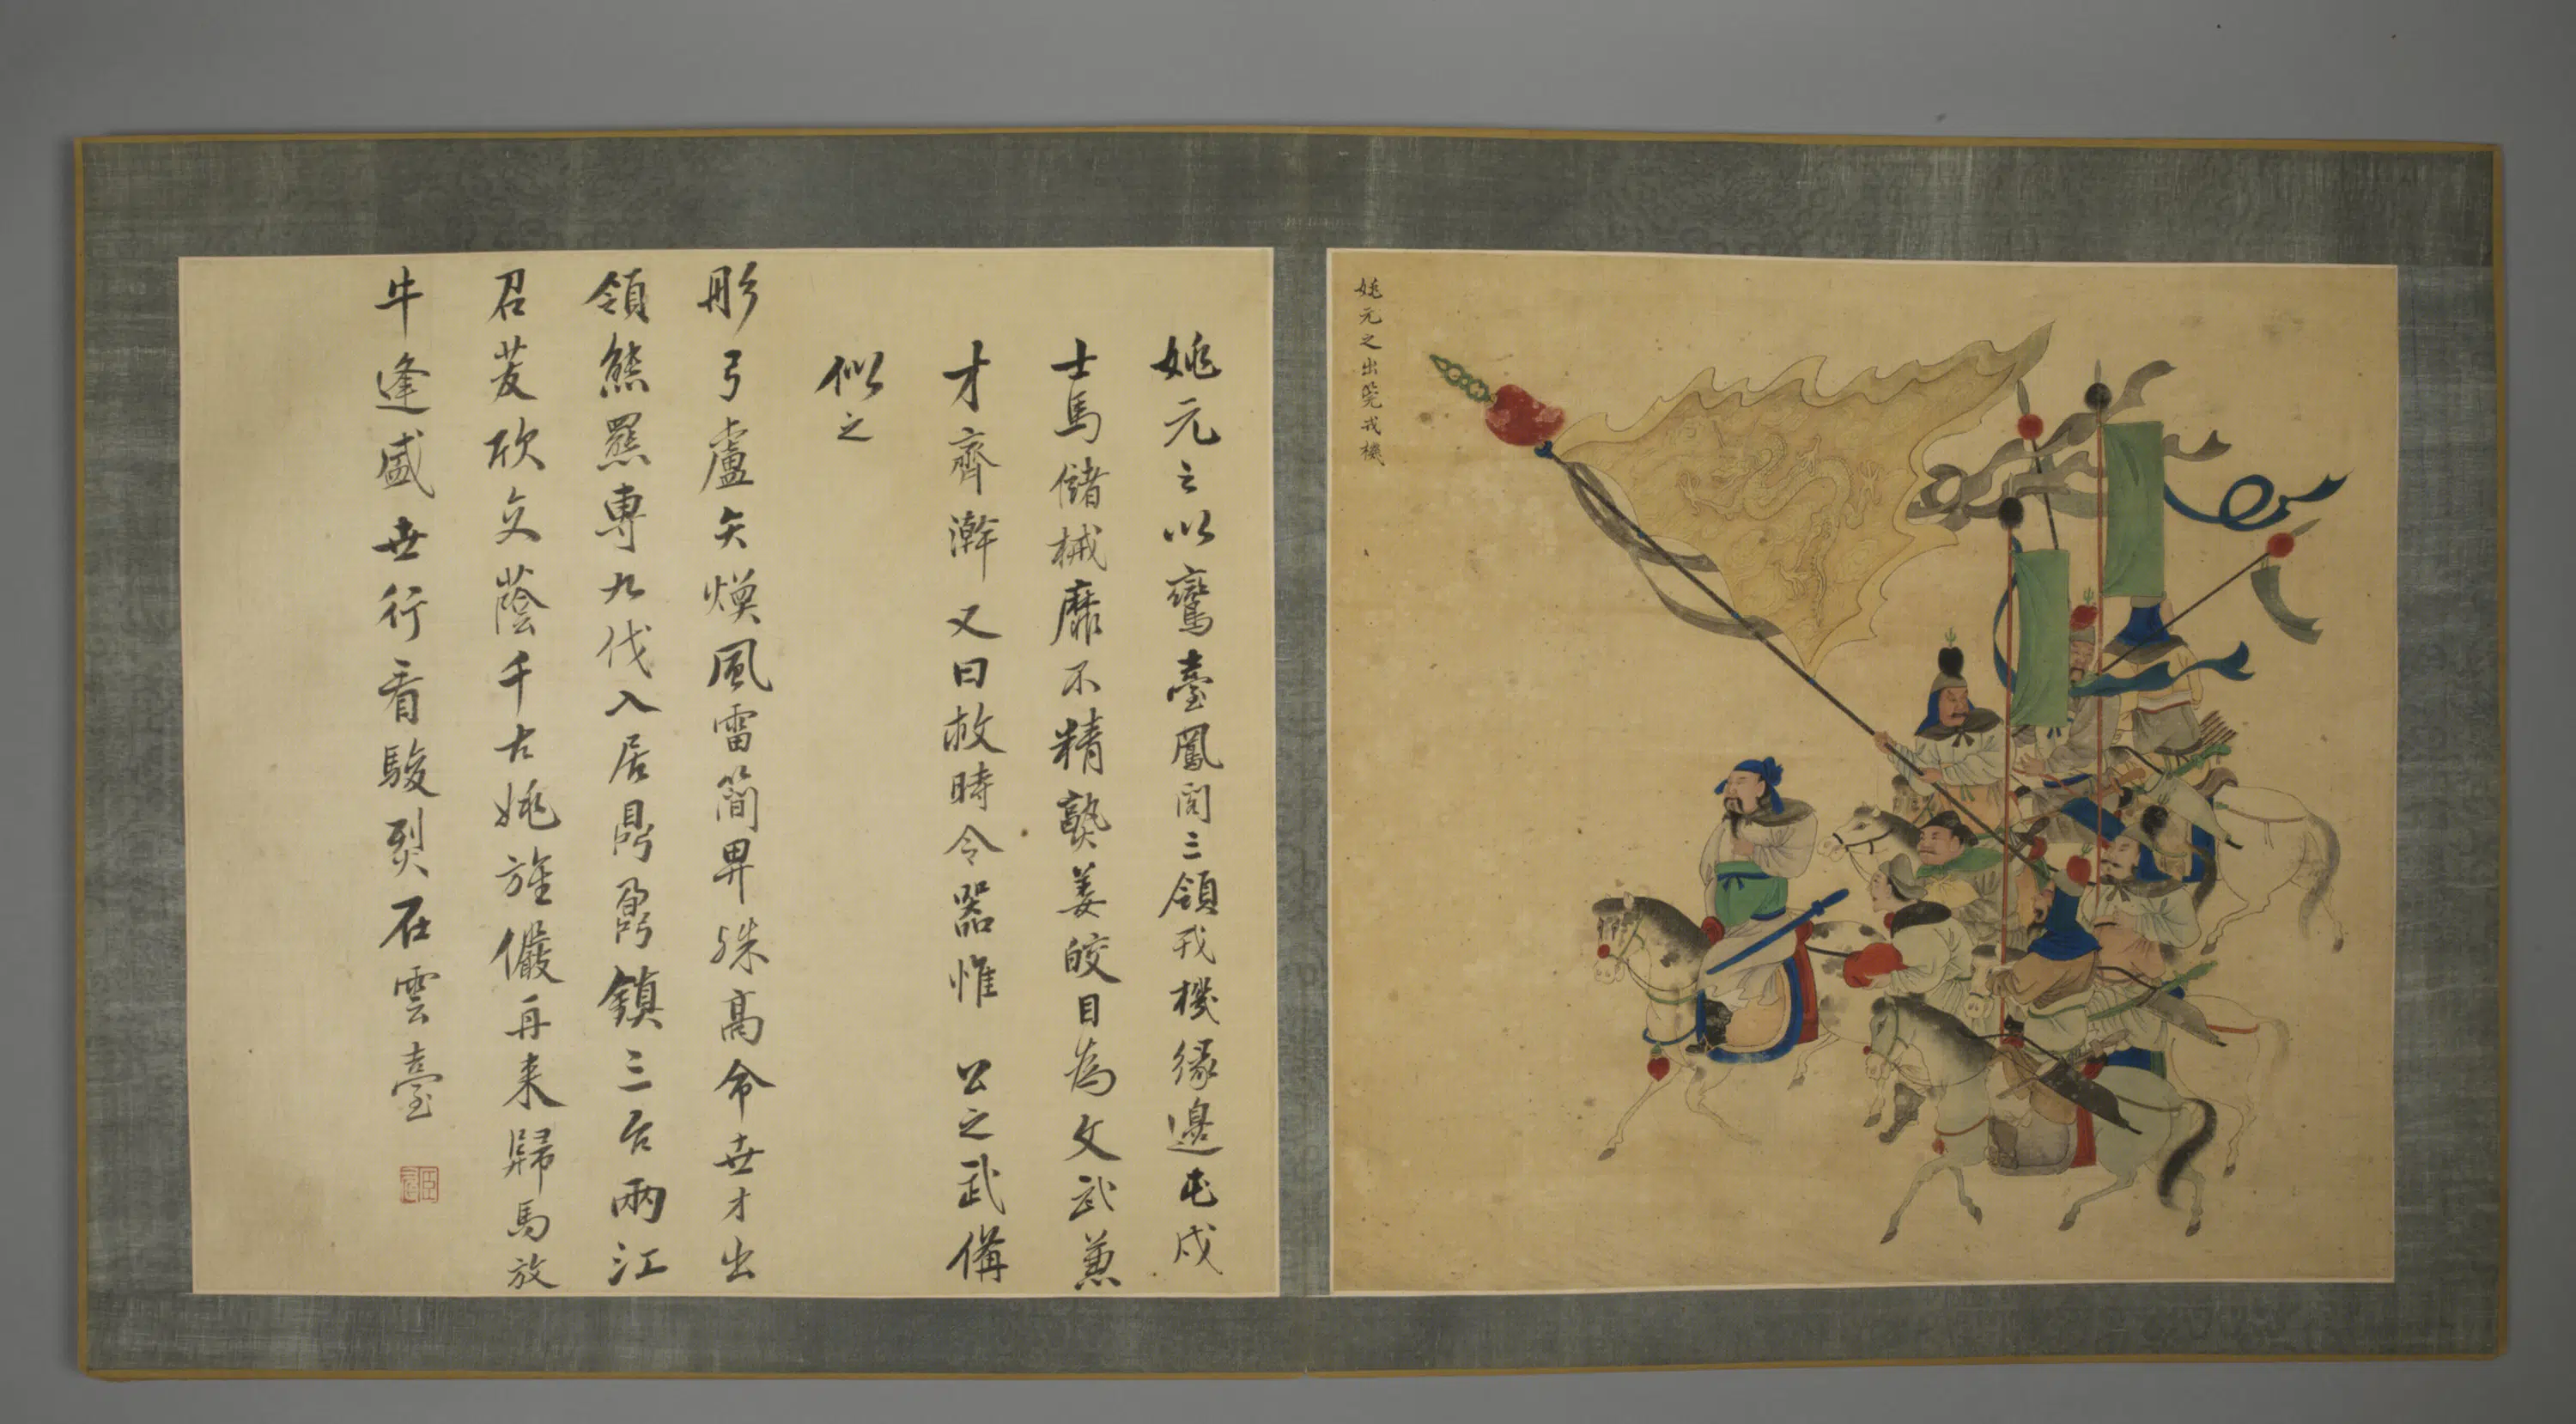 姚元之出筦戎機
姚元之以鸞臺鳳閣三領戎機緣邊屯戍
士馬儲械靡不精熟姜皎目為文武兼
才齊澣又曰救時令器惟 公之武備
似之
彤弓盧矢煥風雷簡畀殊高命世才出
領熊羆專九伐入居鼎鼐鎮三台兩江
召茇欣交蔭千古姚旌儼再来歸馬放
牛逢盛世行看駿烈在雲臺